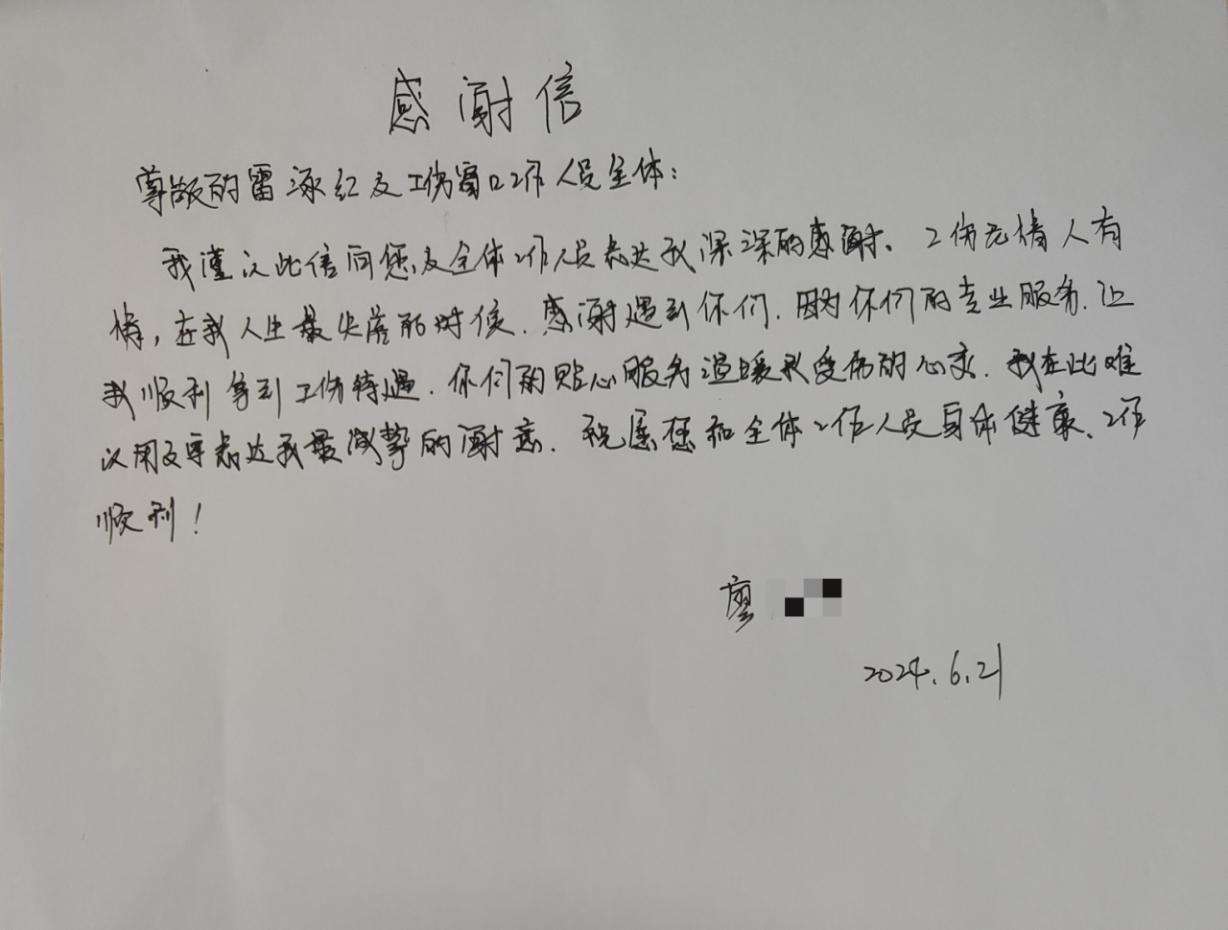 感谢信
尊敬的雷涿红及工伤窗口工作人员全体:
我谨以此信向您及全体工作人员表达我深深的感谢、工伤无情人有
情,在我人生最失落的时候.感谢遇到你们.因为你们的专业服务.让
我顺利拿到工伤待遇.你们的贴心服务温暖我受伤的心灵.我在此难
以用文字表达我最诚挚的谢意.祝愿您和全体工作人员身体健康、工作
顺利!
廖
2024.6.21